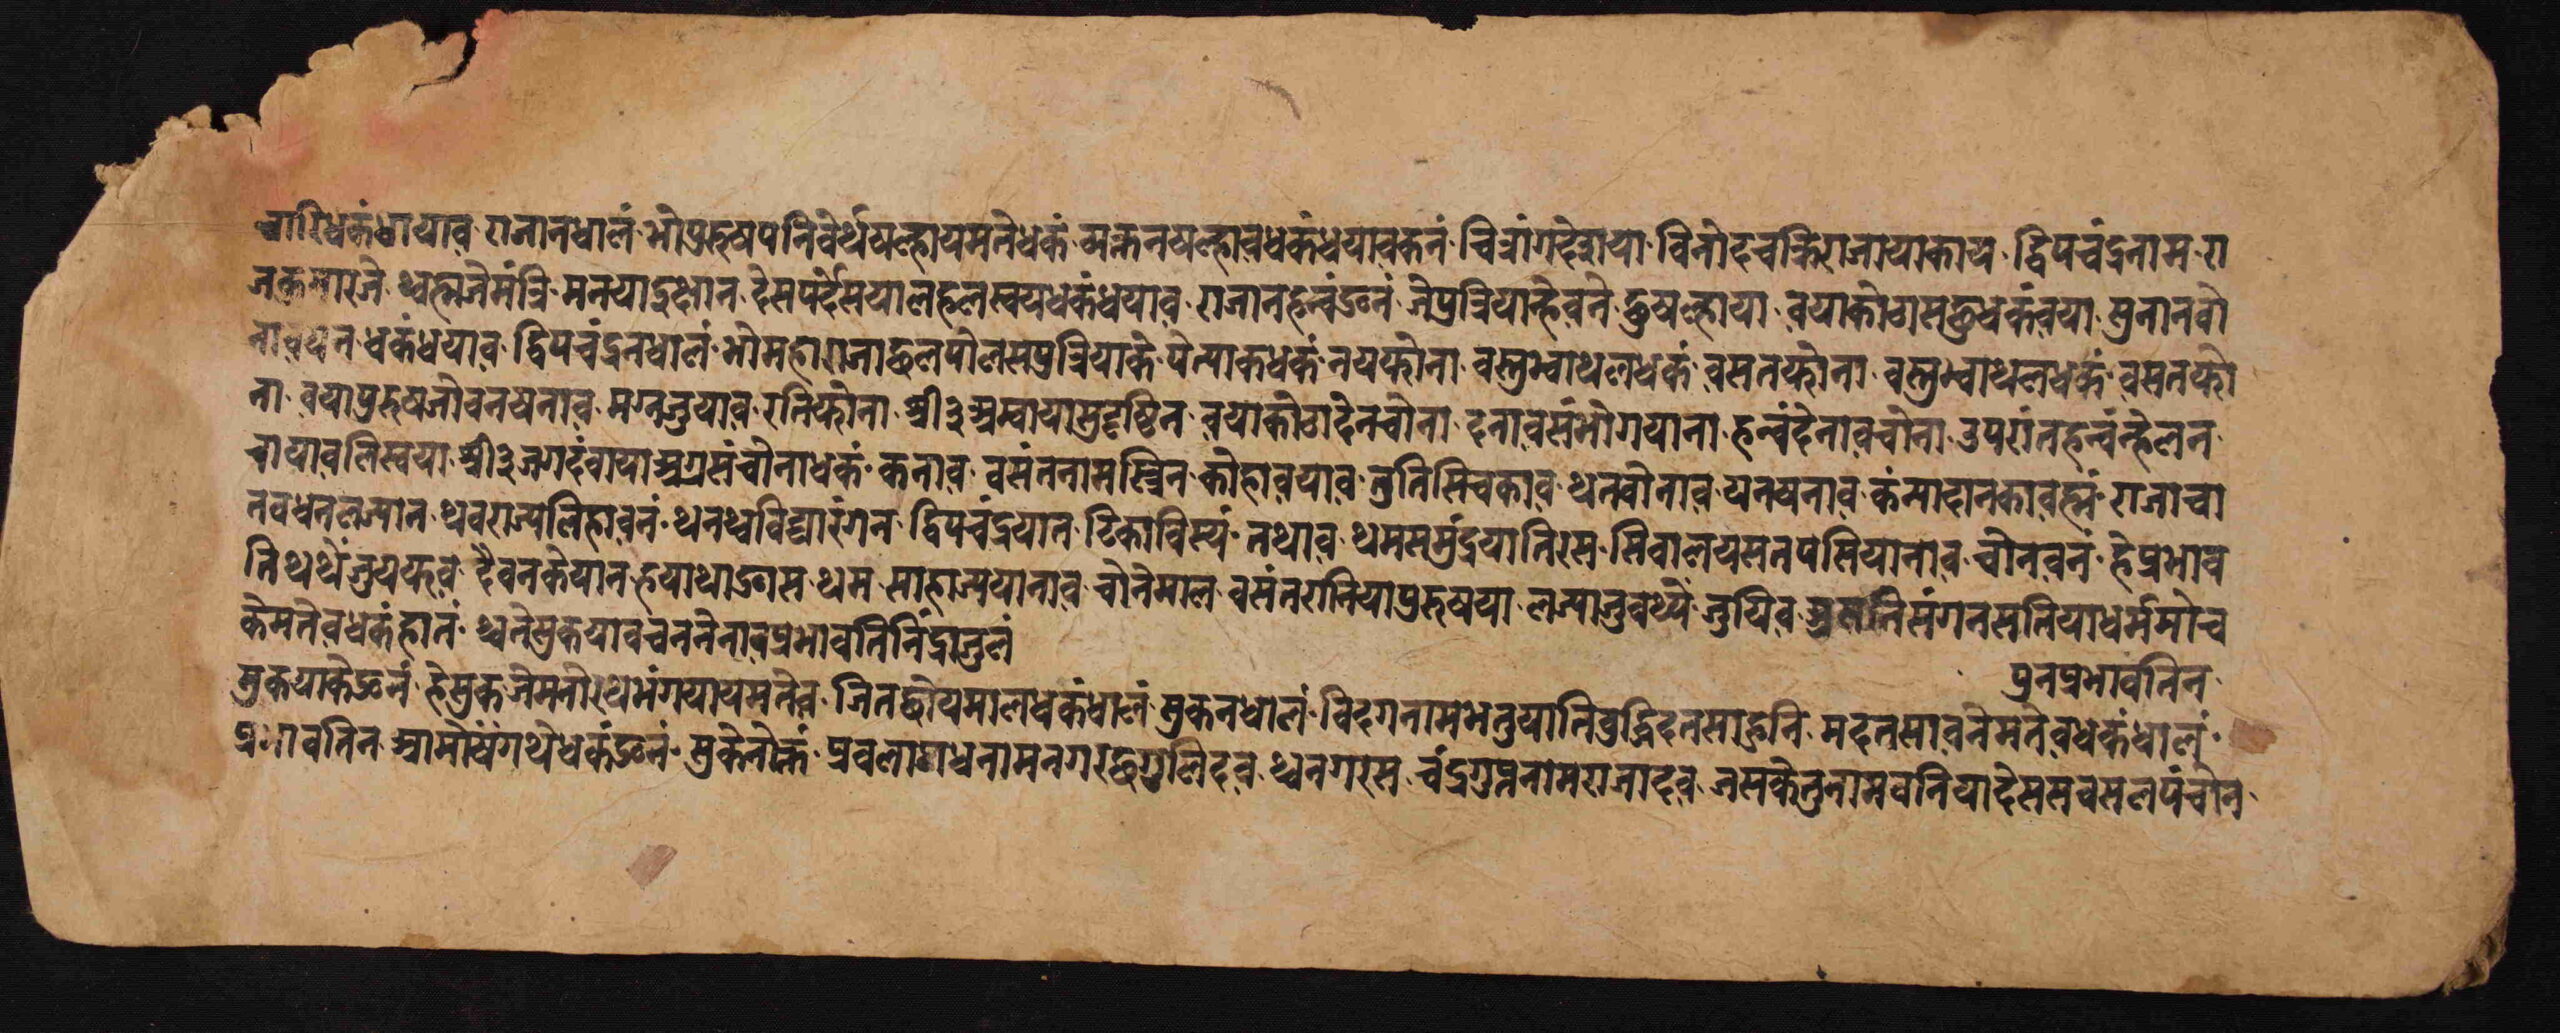 चारिधकंधायाव राजानधालं भोपुरुषपनिवेर्थषल्हायमतेधकं मक्तनषल्हावधकंधयावकनं चित्रांगदेशया विनोदचक्रिराजायाकाय द्विपचंद्रनाम रा
जकुमारजे थ्वह्मजेमंत्रि मनयादुक्षान देसपर्देसयालहलस्वयधकंधयाव राजानहन्वंङनं जेपुत्रियान्हेवने छुषल्हाया वयाकोठासछुधकंवया सुनानवो
नावयन धकंधयाव द्विपचंद्रनधालं भोमहाराजाछलपोलसपुत्रियाके पेत्याकधकं नयफोना वस्तुभ्वाथलधकं वसतफोना वस्तुभ्वाथलधकं वसतफो
ना वयापुरुषजोवनषनाव मग्नजुयाव रतिफोना श्री३अम्वायासुदृष्टिन वयाकोठादेनचोना दनावसंभोगयाना हन्वंदेनावचोना उपरांतहन्वंन्हेलन
चायावलिस्वया श्री३जगदंवायाअग्रसंचोनाधकं कनाव वसंतनामस्त्रिन कोहावयाव तुतिसिचकाव थनवोनाव यनयनाव कंन्यादानकावह्मं राजाचा
नवधनलज्यान थवराज्यलिहावनं थनथ्वविद्यारंगन द्विपचंद्रयात टिकाविस्यं तथाव थमसमुंद्रयातिरस सिवालयसतपसियानाव चोनवनं हेप्रभाव
तिथथेंजुयफव दैवनकेयान हयाथाङास थम साहाज्ययानाव चोनेमाल वसंतरानियापुरुषया लज्याजुवथ्यें जुयिव असतिसंगनसतियाधर्ममोच
केमतेवधकंहातं थ्वतेसुकयावचननेनावप्रभावतिनिंद्राजुलं
पुनप्रभावतिन
सुकयाकेङनं हेसुक जेमनोरथभंगयायमतेव जितछोयमालधकंधालं सुकनधालं विदगनामभतुयातिवुद्धिदतसाहुनि मदतसावनेमतेवधकंधालं
प्रभावतिन आमोषंगथेधकंङनं सुकनोक्तं प्रवलागधनामनगरछगुलिदव थ्वनगरस चंद्रगुप्तनामराजादव जसकेतुनामवनियादेससवसलपंचोन